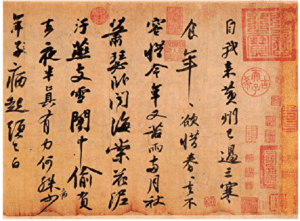 自我來黃州已過三寒
食年々欲惜春々去不
容惜今年又苦雨兩月秋
蕭瑟臥聞海棠花泥
汙燕支雪闇中偷負
去夜半真有力何殊病少
年子病起頭已白